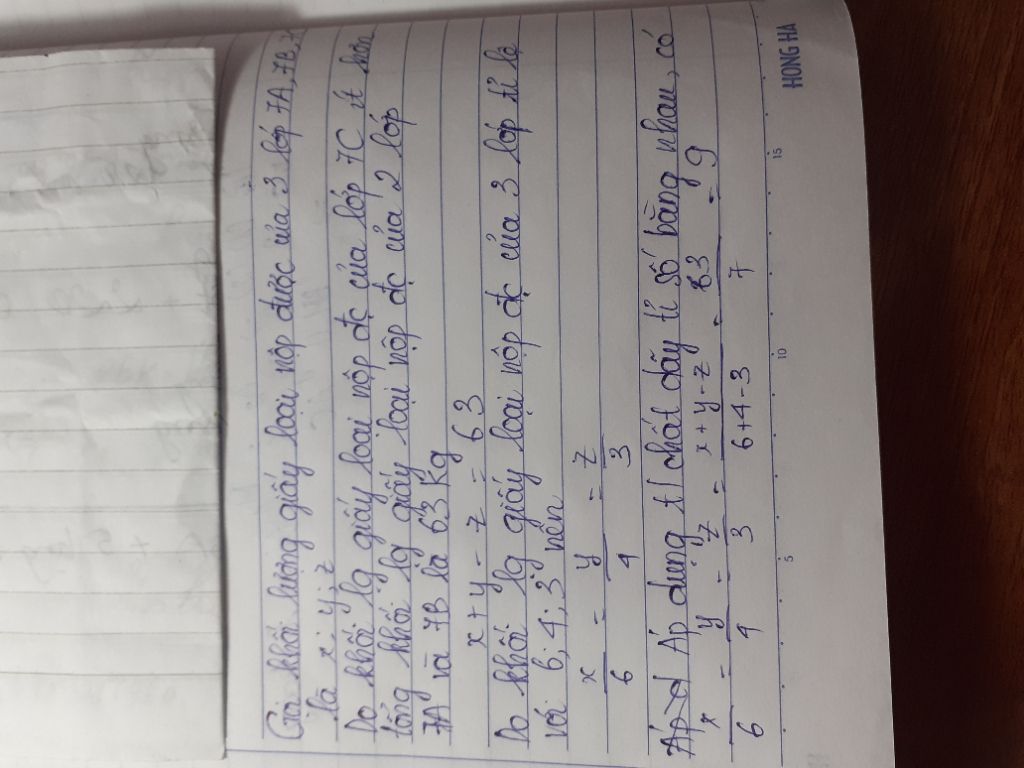 Gọi khối lượng giấy loại nộp được của 3 lớp 7A, 7B, 7
là x; y; z
Do khối lg giấy loại nộp đc của lớp 7C ít hơn
tổng khối lg giấy loại nộp đc của 2 lớp
7A và 7B là 63 Kg
x + y - z = 63
Do khối lg giấy loại nộp đc của 3 lớp tỉ lệ
với 6; 4; 3 nên
x/6 = y/4 = z/3
Áp d Áp dụng t/chất dãy tỉ số bằng nhau, có
x/6 = y/4 = z/3 = x + y - z/6 + 4 - 3 = 63/7 = 9
5 10 15
HONG HA